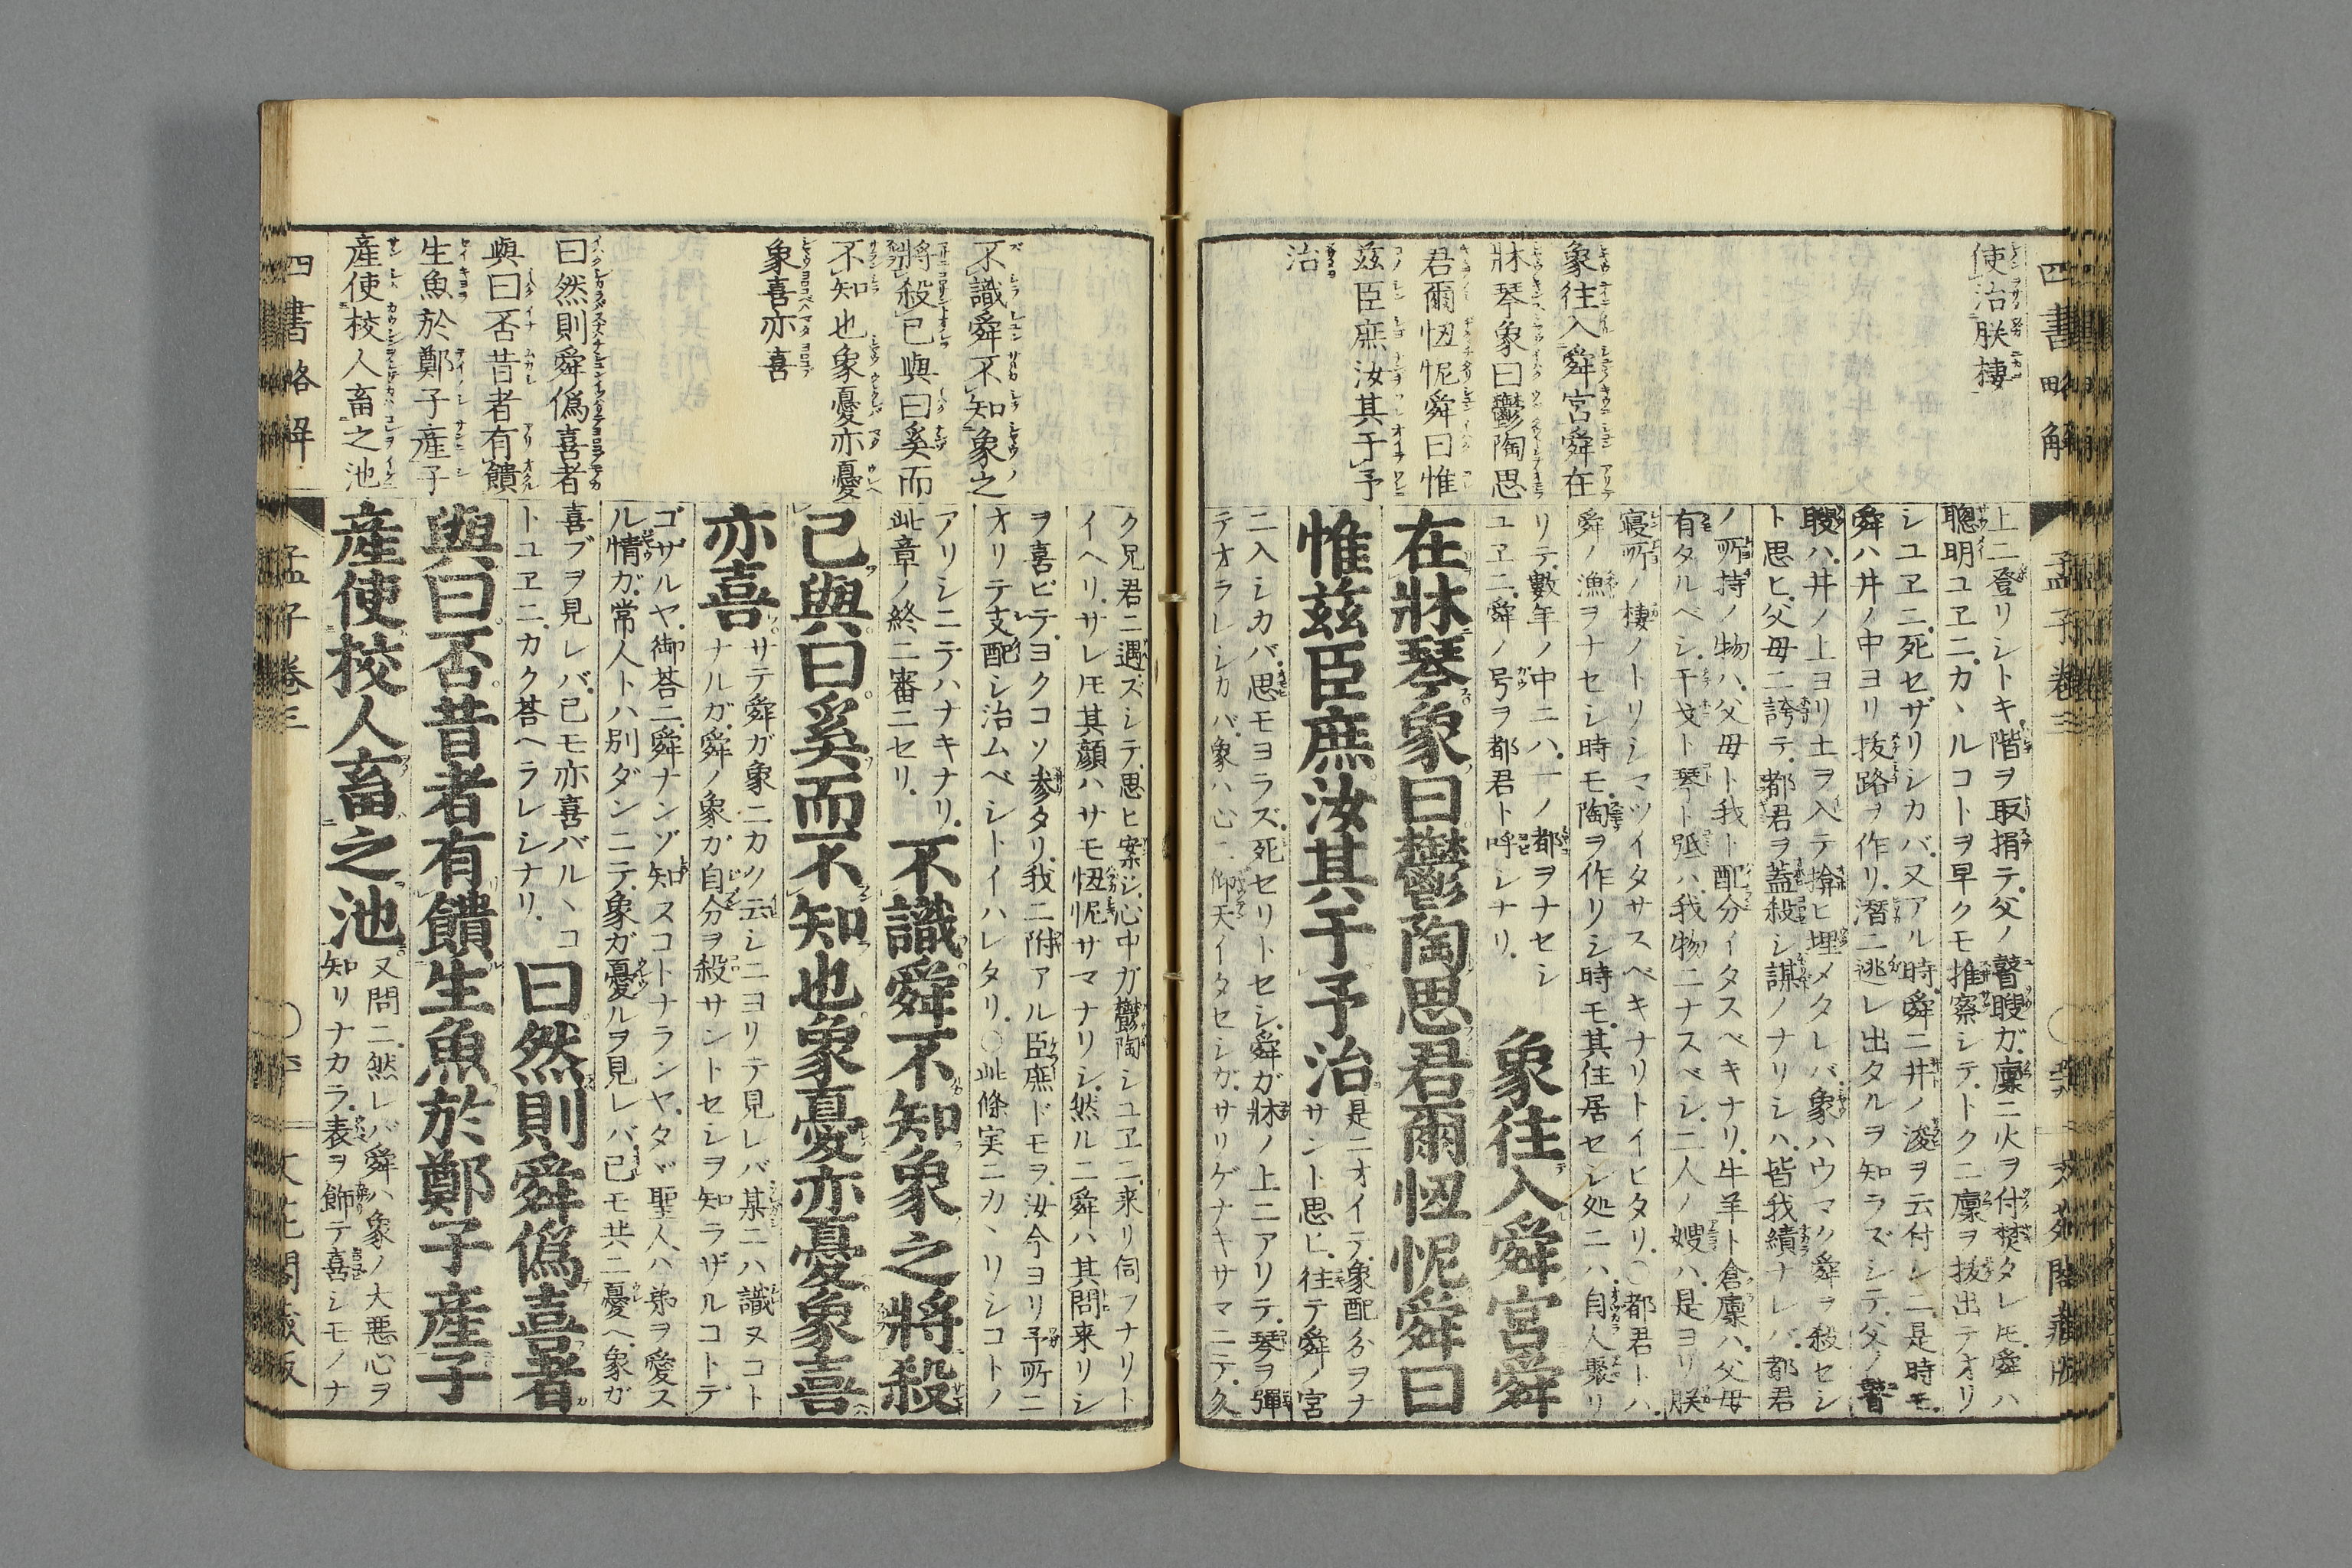 四書略解
孟子卷三
使治朕棲
象往入舜宮舜在
牀琴象曰鬱陶思
君爾忸怩舜曰惟
茲臣庶汝其于予
治
上ニ登リシトキ階ヲ取捐テ父ノ瞽瞍ガ廩ニ火ヲ付焚タレ𪜈舜ハ
聰明ユヱニカヽルコトヲ早クモ推察シテトクニ廩ヲ抜出テオリ
シユヱニ死セザリシカバ又アル時舜ニ井ノ浚ヲ云付シニ是時モ
舜ハ井ノ中ヨリ抜路ヲ作リ潛ニ逃レ出タルヲ知ラズシテ父ノ瞽
瞍ハ井ノ上ヨリ土ヲ入テ揜ヒ埋メタレバ象ハウマク舜ヲ殺セシ
ト思ヒ父母ニ誇テ都君ヲ蓋殺シ謀ノナリシハ皆我績ナレバ都君
ノ所持ノ物ハ父母ト我ト配分イタスベキナリ牛羊ト倉廩ハ父母
有タルベシ干戈ト琴ト弤ハ我物ニナスベシ二人ノ嫂ハ是ヨリ朕
寝所ノ棲ノトリシマツイタサスベキナリトイヒタリ○都君トハ
舜ノ漁ヲナセシ時モ陶ヲ作リシ時モ其住居セシ処ニハ自人聚リ
リテ數年ノ中ニハ一ノ都ヲナセシ
ユヱニ舜ノ号ヲ都君ト呼シナリ
象往入舜宮舜
在牀琴象曰鬱陶思君爾忸怩舜曰
惟茲臣庶汝其于予治
是ニオイテ象配分ヲナ
サント思ヒ往テ舜ノ宮
ニ入シカバ思モヨラズ死セリトセシ舜ガ牀ノ上ニアリテ琴ヲ彈
テオラレシカバ象ハ心ニ仰天イタセシガサリゲナキサマニテ久
不識舜不知象之
將殺已與曰奚而
不知也象憂亦憂
象喜亦喜
曰然則舜偽喜者
與曰否昔者有饋
生魚於鄭子産子
産使校人畜之池
ク兄君ニ遇ズシテ思ヒ案シ心中ガ鬱陶シユヱニ来リ伺フナリト
イヘリサレ𪜈其顔ハサモ忸怩サマナリシ然ルニ舜ハ其問来リシ
ヲ喜ビテヨクコソ参タリ我ニ附アル臣庶ドモヲ汝今ヨリ予所ニ
オリテ支配シ治ムベシトイハレタリ○此條実ニカヽリシコトノ
アリシニテハナキナリ
此章ノ終ニ審ニセリ
不識舜不知象之將殺
已與曰奚而不知也象憂亦憂象喜
亦喜
サテ舜ガ象ニカク云シニヨリテ見レバ某ニハ識ヌコト
ナルガ舜ノ象ガ自分ヲ殺サントセシヲ知ラザルコトデ
ゴザルヤ御荅ニ舜ナンゾ知ヌコトナランヤタヾ聖人ハ弟ヲ愛ス
ル情ガ常人トハ別ダンニテ象ガ憂ルヲ見レバ己モ共ニ憂ヘ象ガ
喜ブヲ見レバ己モ亦喜バルヽコ
トユヱニカク荅ヘラレシナリ
曰然則舜偽喜者
與曰否昔者有饋生魚於鄭子産子
産使校人畜之池
又問ニ然レバ舜ハ象ノ大悪心ヲ
知リナカラ表ヲ飾テ喜シモノナ
四書略解
孟子卷三